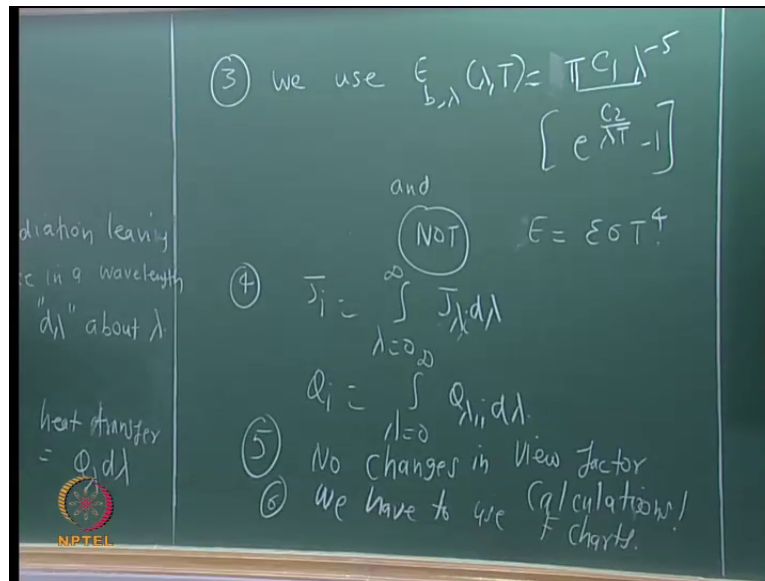 diation leaving
ce in a wavelength
"dλ" about λ.
heat transfer
= Qλ dλ
NPTEL
③ We use E b,λ (λ,T) = π C1 λ^-5
[ e^(C2/λT) -1 ]
and
NOT E = εσT^4.
④ Ji = ∫ λ=0 ∞ Jλ,i dλ
Qi = ∫ λ=0 ∞ Qλ,i dλ.
⑤ No changes in view factor
Calculations!
⑥ We have to use F Charts.